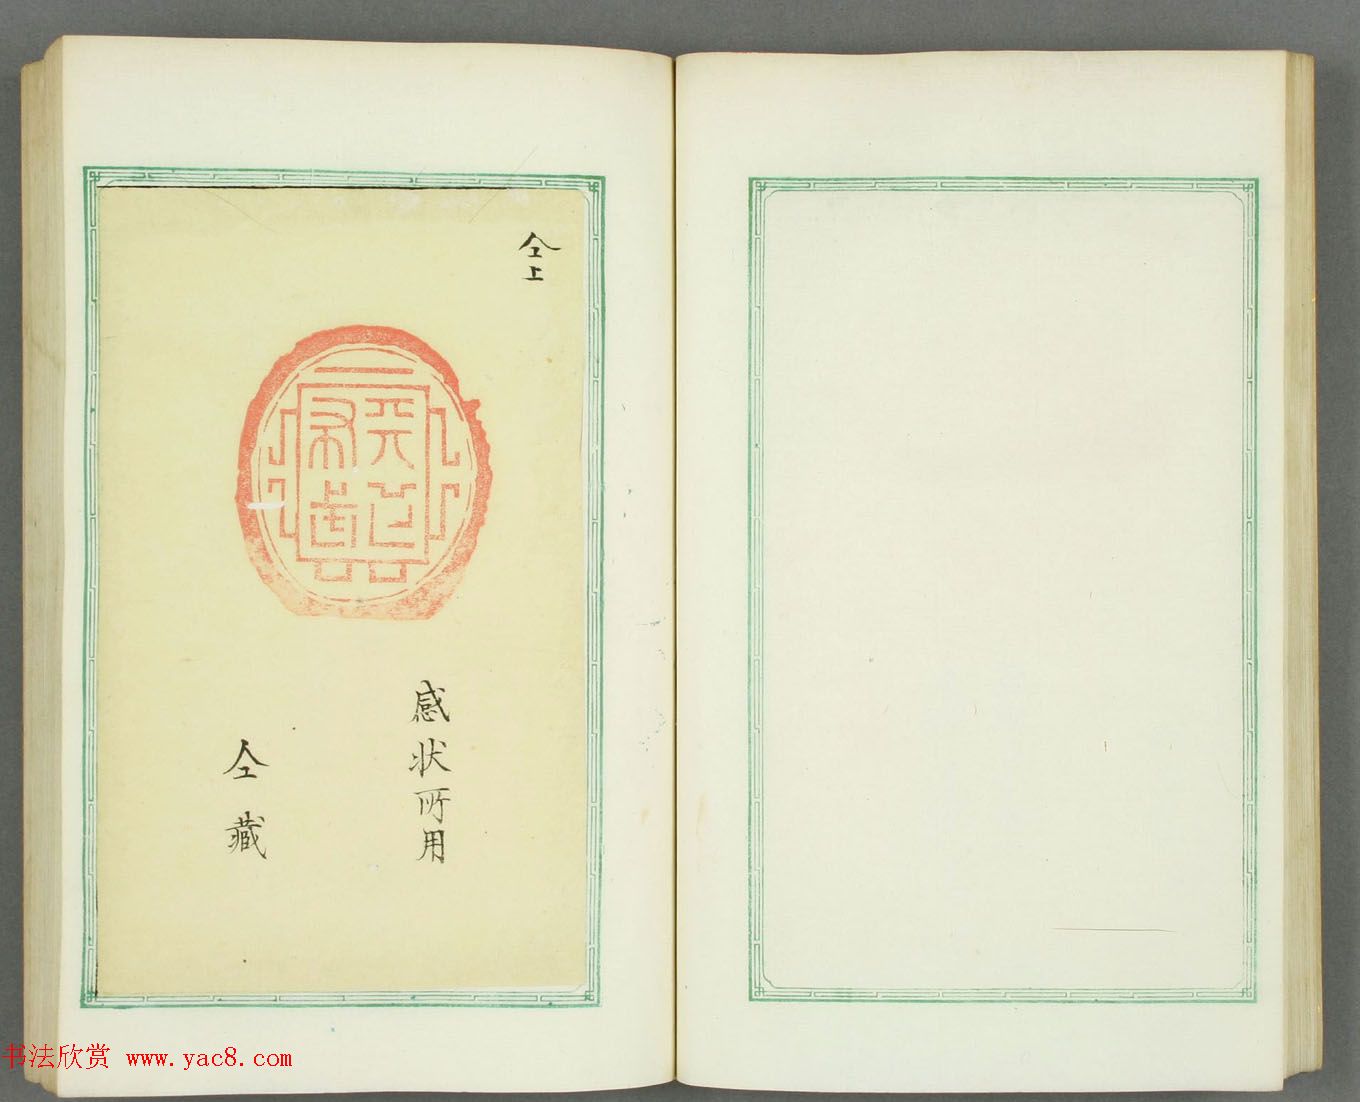 仝上
感状所用
仝藏
书法欣赏 www.yac8.com